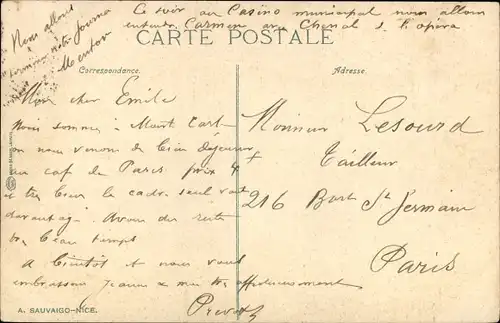 Ce soir au Casino municipal nous allons
entendre Carmen avec Chenal d. l'opéra
Nous allons
terminer notre journée
Menton
CARTE POSTALE
Correspondance.
Adresse.
Mon cher Emile
Nous sommes à Monte Carlo
on nous venons de bien déjeuner
au café de Paris prix 4
et très bien le cadre seul vaut
davantage. Avons du reste
très beau temps
A bientôt et nous vous
embrassons Jeanne & moi très affectueusement
Monsieur Lesourd
Tailleur
216 Bard St Germain
Paris
A. SAUVAIGO-NICE.